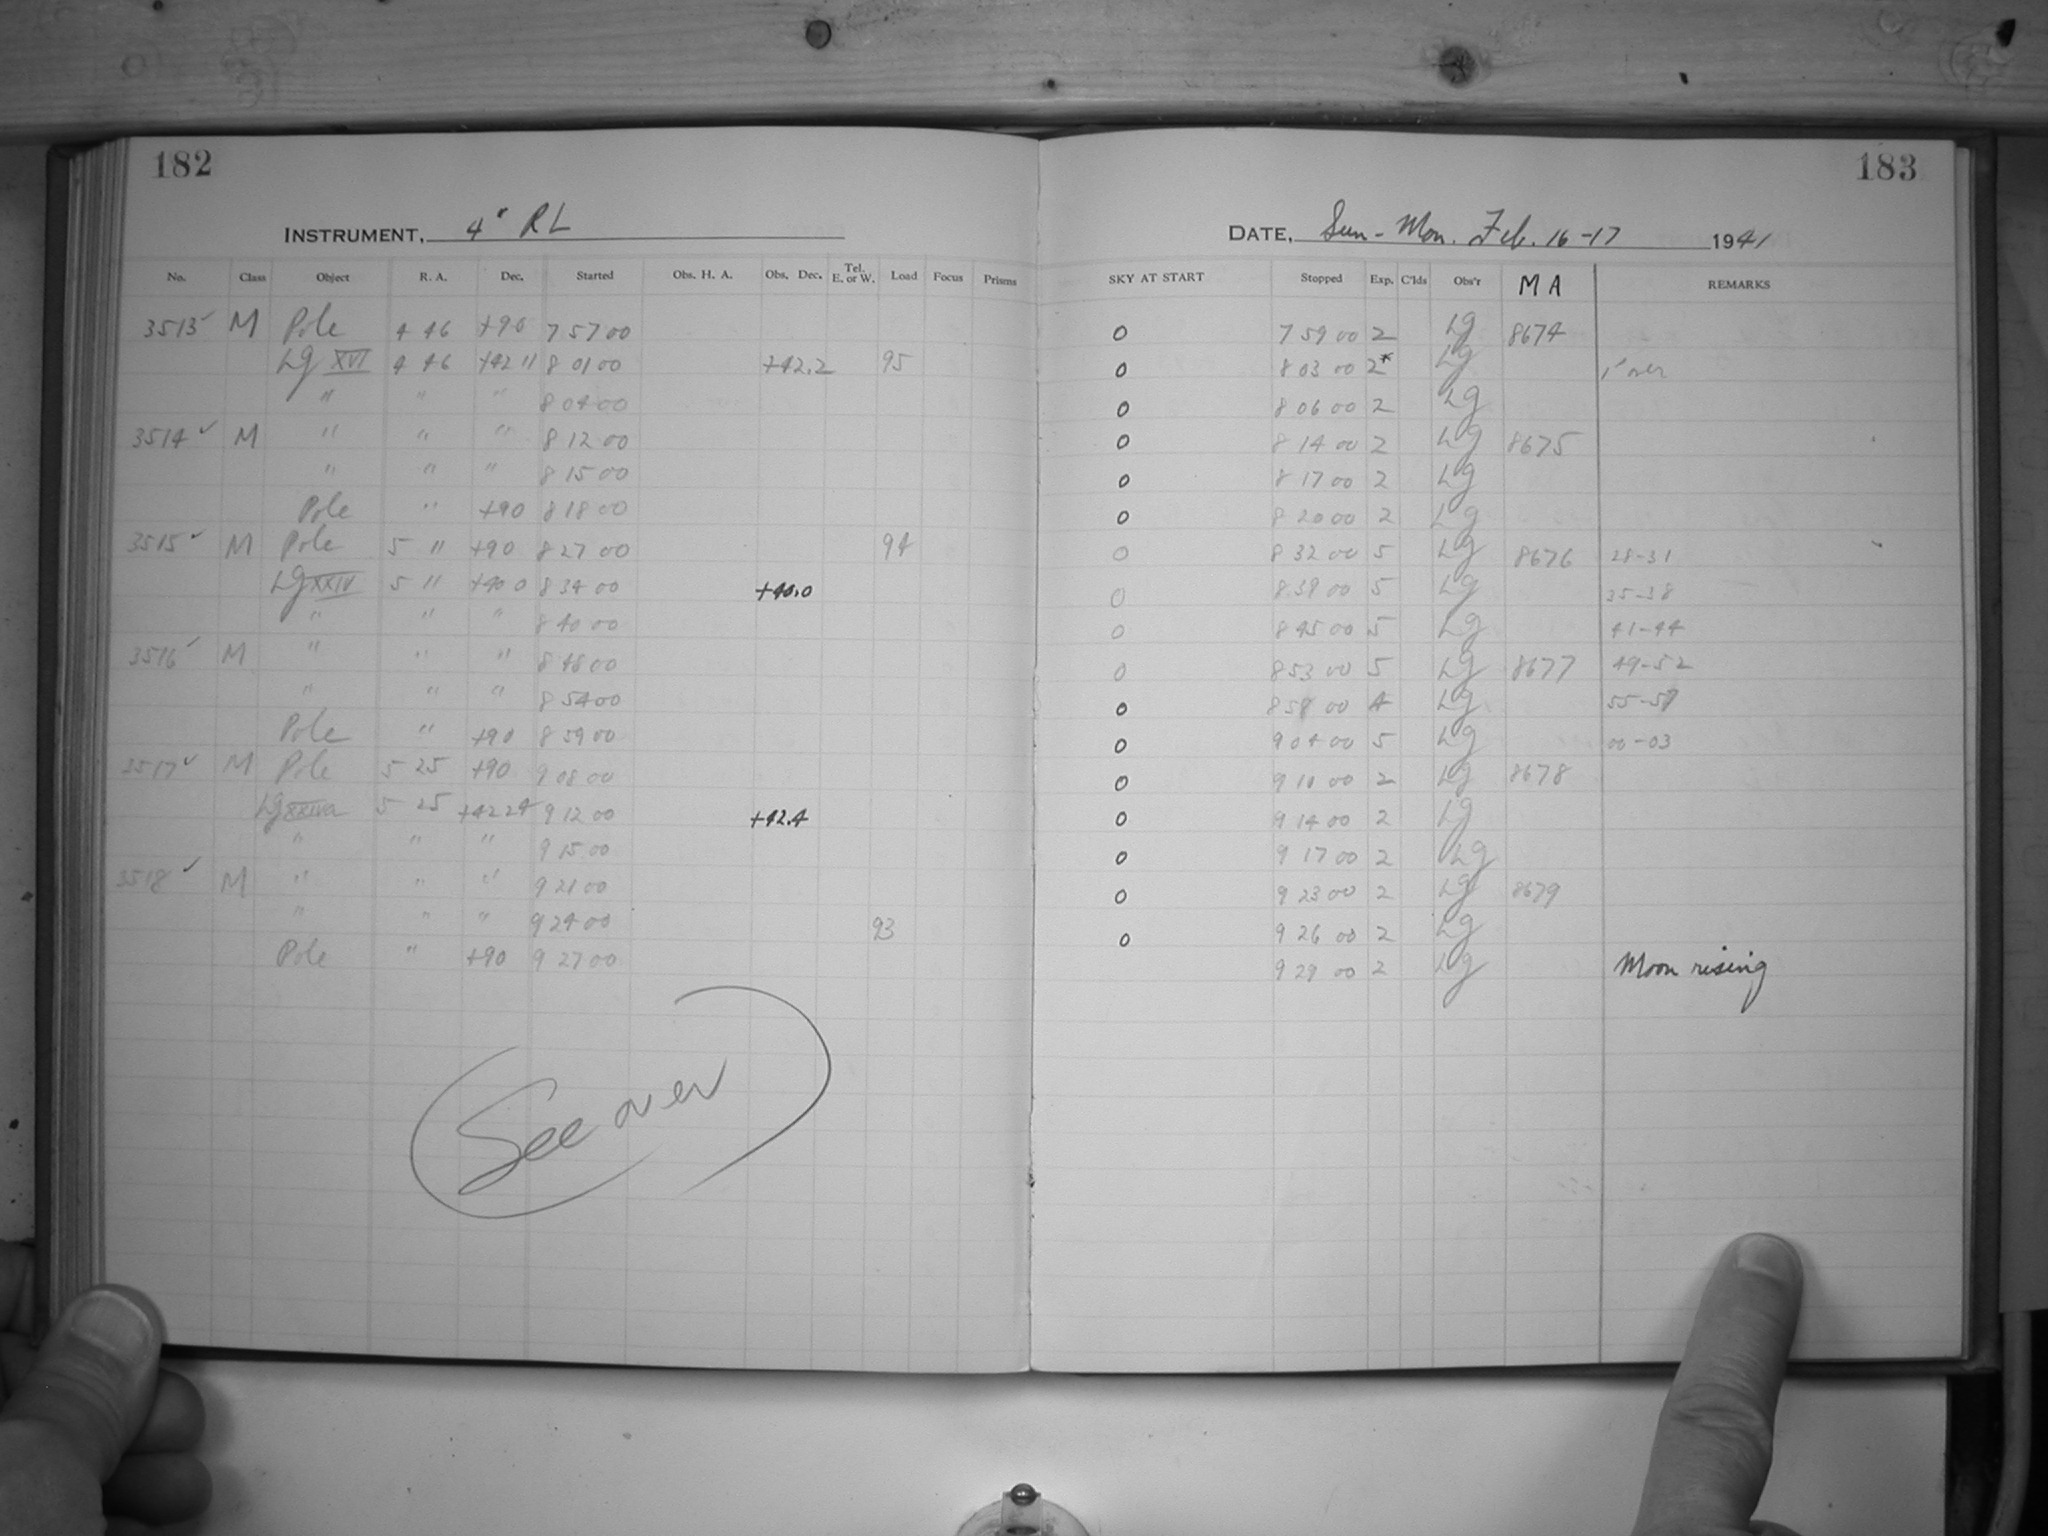 182
183
INSTRUMENT, 4" RL
DATE, Sun - Mon. Feb. 16-17 1941
No. Class Object R. A. Dec. Started Obs. H. A. Obs. Dec. Tel. E. or W. Load Focus Prisms SKY AT START Stopped Exp. C'lds Obs'r MA REMARKS
3513 ✓ M Pole 4 46 +90 7 57 00 0 7 59 00 2 Lg 8674
Lg XVI 4 46 +42 11 8 01 00 +42.2 95 0 8 03 00 2* Lg 1s over
" " " 8 04 00 0 8 06 00 2 Lg
3514 ✓ M " " " 8 12 00 0 8 14 00 2 Lg 8675
" " " 8 15 00 0 8 17 00 2 Lg
Pole " +90 8 18 00 0 8 20 00 2 Lg
3515 ✓ M Pole 5 11 +90 8 27 00 94 0 8 32 00 5 Lg 8676 28-31
Lg XXIV 5 11 +40 0 8 34 00 +40.0 0 8 39 00 5 Lg 35-38
" " " 8 40 00 0 8 45 00 5 Lg 41-44
3516 ✓ M " " " 8 48 00 0 8 53 00 5 Lg 8677 49-52
" " " 8 54 00 0 8 58 00 4 Lg 55-57
Pole " +90 8 59 00 0 9 04 00 5 Lg 00-03
3517 ✓ M Pole 5 25 +90 9 08 00 0 9 10 00 2 Lg 8678
Lg XXIVa 5 25 +42 24 9 12 00 +42.4 0 9 14 00 2 Lg
" " " 9 15 00 0 9 17 00 2 Lg
3518 ✓ M " " " 9 21 00 0 9 23 00 2 Lg 8679
" " " 9 24 00 93 0 9 26 00 2 Lg
Pole " +90 9 27 00 9 29 00 2 Lg Moon rising
See over